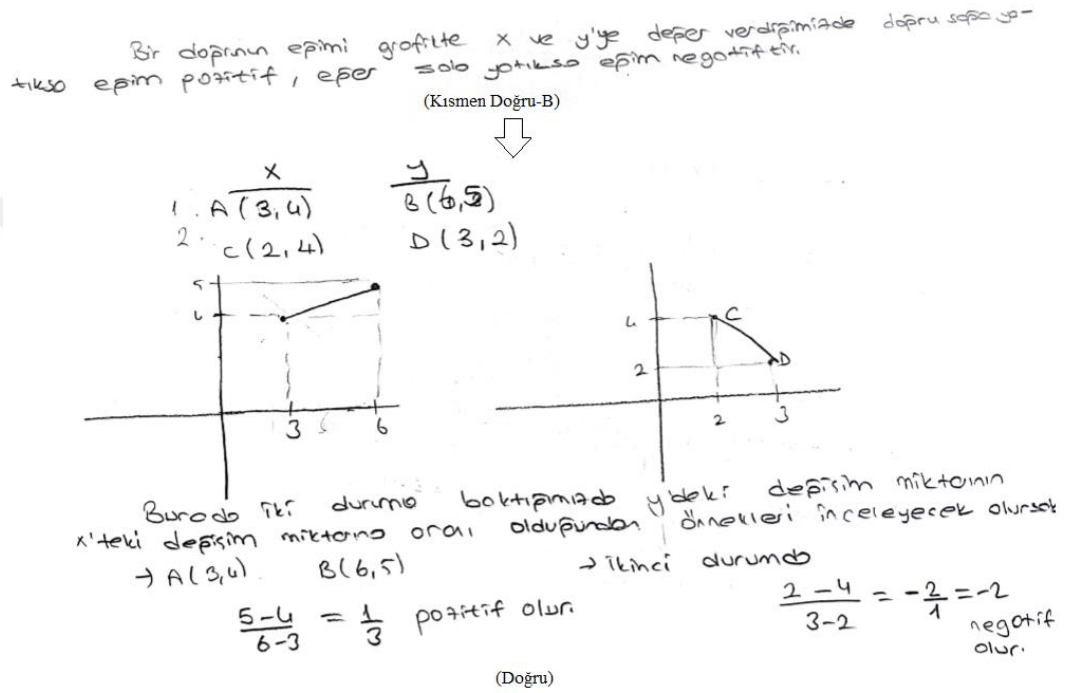 Bir doğrunun eğimi grafikte x ve y'ye değer verdiğimizde doğru sağa ya-
tıksa eğim pozitif, eğer sola yatıksa eğim negatiftir.
(Kısmen Doğru-B)
x y
1. A(3,4) B(6,5)
2. C(2,4) D(3,2)
5
4
3 6
4 C
2 D
2 3
Burada iki duruma baktığımızda y'deki değişim miktarının
x'teki değişim miktarına oranı olduğundan örnekleri inceleyecek olursak
→ A(3,4) B(6,5) → ikinci durumda
5-4/6-3 = 1/3 pozitif olur.
2-4/3-2 = -2/1 = -2
negatif
olur.
(Doğru)